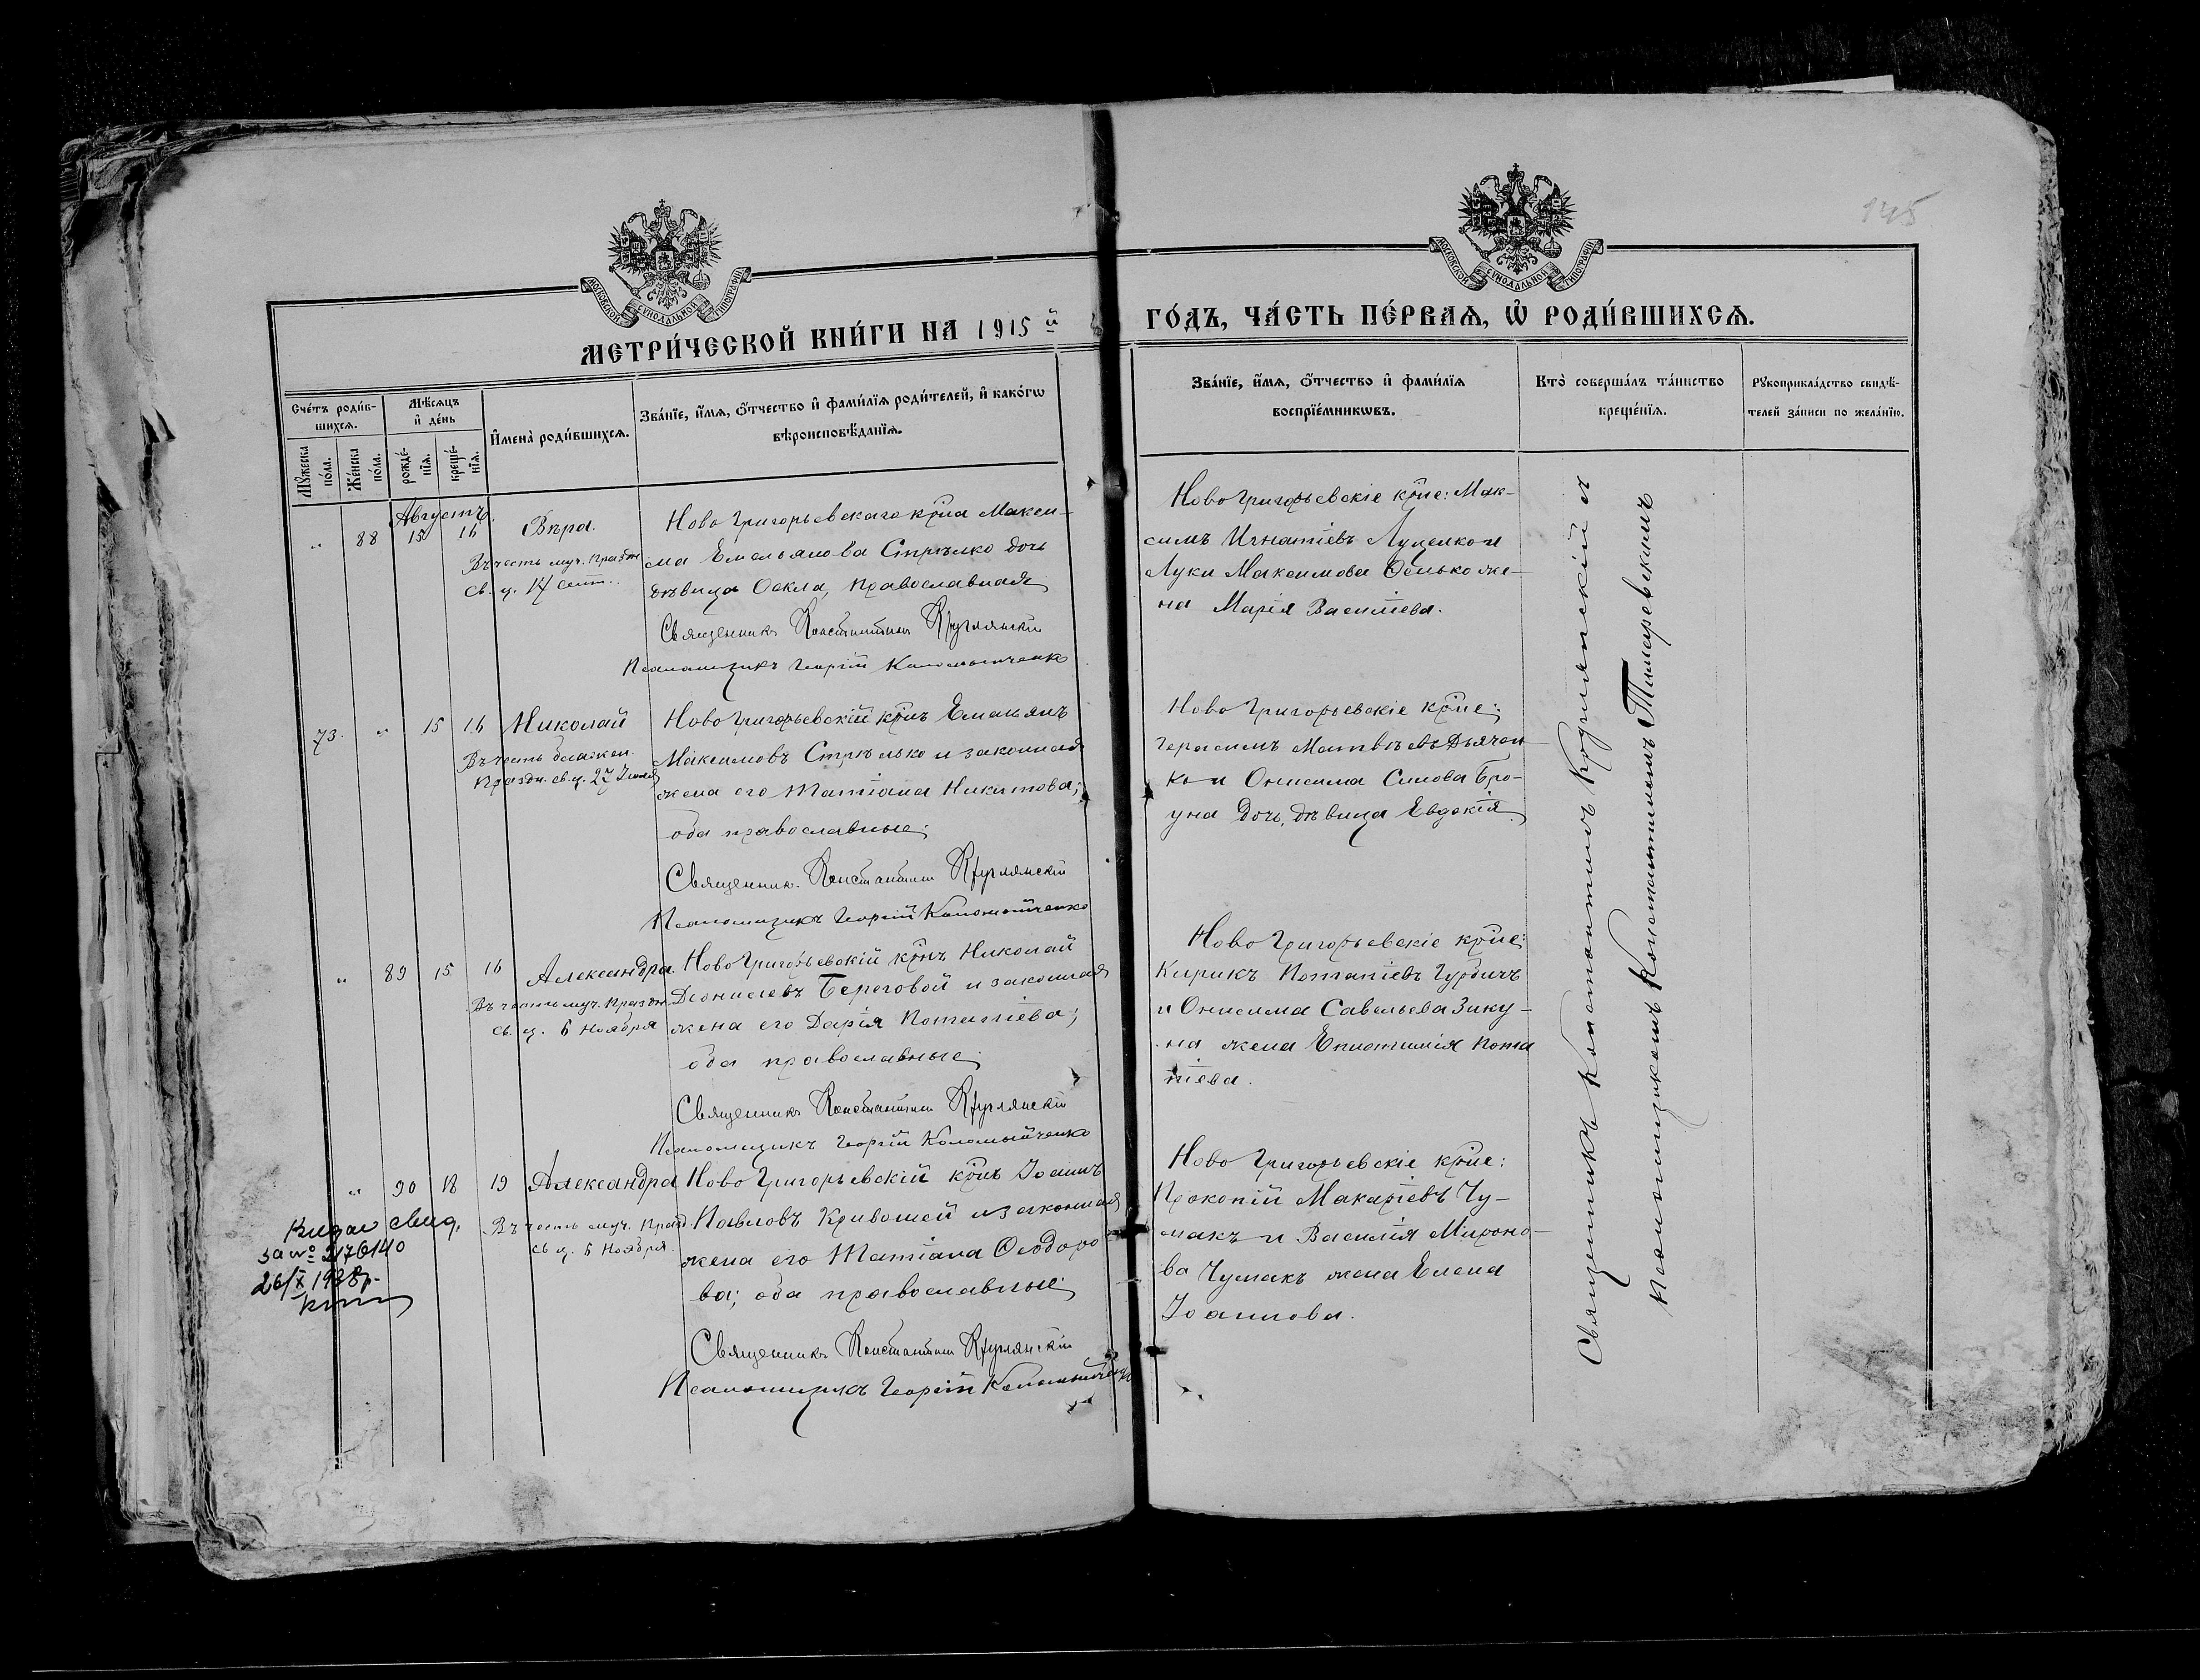 145
МОСКОВСКОЙ СѴНОДАЛЬНОЙ ТИПОГРАФІИ
МОСКОВСКОЙ СѴНОДАЛЬНОЙ ТИПОГРАФІИ
МЕТРИ́ЧЕСКОЙ КНИ́ГИ НА 1915й
ГО́ДЪ, ЧА́СТЬ ПЕ́РВАѦ, Ѽ РОДИ́ВШИХСѦ.
Сче́тъ роди́в-
шихсѧ.
Мѣ́сѧцъ
и҆ де́нь
Мꙋ́жеска
по́ла.
Же́нска
по́ла.
рожде́-
нїѧ.
креще́-
нїѧ.
И҆мена̀ роди́вшихсѧ.
Зва́нїе, и҆́мѧ, ѻ҆́тчество и҆ фами́лїѧ роди́телей, и҆ како́гѡ
вѣроисповѣ́данїѧ.
Зва́нїе, и҆́мѧ, ѻ҆́тчество и҆ фами́лїѧ
воспрїе́мникѡвъ.
Кто̀ соверша́лъ та́инство
креще́нїѧ.
Рꙋкоприкла́дство свидѣ́-
телей за́писи по жела́нїю.
Августъ.
„ 88 15 16 Вѣра.
Въ честь муч. Праздн
св. ц. 17 Сент.
Ново Григорьевскаго кр̃на Макси-
ма Емельянова Стрѣлко дочь
дѣвица Ѳекла, православная
Священникъ Константинъ Круглянскій
Псаломщикъ Георгій Коломыйченко
Ново Григорьевскіе кр̃не: Мак-
симъ Игнатіевъ Луценко и
Луки Максимова Осиько же-
на Марія Василіева.
73. „ 15 16 Николай
Въ честь блажен.
Праздн. св. ц. 27 Іюля
Ново Григорьевскій кр̃нъ Емельянъ
Максимовъ Стрѣлько и законная
жена его Татіана Никитова;
оба православные;
Священникъ Константинъ Круглянскій
Псаломщикъ Георгій Коломыйченко
Ново Григорьевскіе кр̃не:
Герасимъ Матвѣевъ Дьячен-
ко и Онисима Симова Бро-
уна Дочь, дѣвица Евдокія
„ 89 15 16 Александра.
Въ честь муч. Праздн.
св. ц. 6 Ноября
Ново Григорьевскій кр̃нъ Николай
Діонисіевъ Береговой и законная
жена его Дарія Потапіева;
оба православные;
Священникъ Константинъ Круглянскій
Псаломщикъ Георгій Коломыйченко
Ново Григорьевскіе кр̃не:
Кирикъ Потапіевъ Гурбичъ
и Онисима Савельева Зику-
на жена Епистимія Пота
піева.
„ 90 18 19 Александра
Въ честь муч. Празд
св ц. 6 Ноября.
Ново Григорьевскій кр̃нъ Іоаннъ
Павловъ Кривошей и законная
жена его Татіана Ѳеодоро
ва; оба православные;
Священникъ Константинъ Круглянскій
Псаломщикъ Георгій Коломыйченко
Ново Григорьевскіе кр̃не:
Прокопій Макаріевъ Чу-
макъ и Василія Мироно-
ва Чумакъ жена Елена
Іоаннова.
Видан свид.
за №
26/X 1938р.
Священникъ Константинъ Круглянскій съ
псаломщикомъ Константиномъ Тимаревскимъ